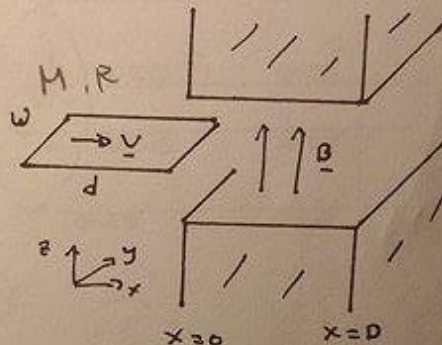 M, R
w
V
d
B
z
y
x
x=0
x=D